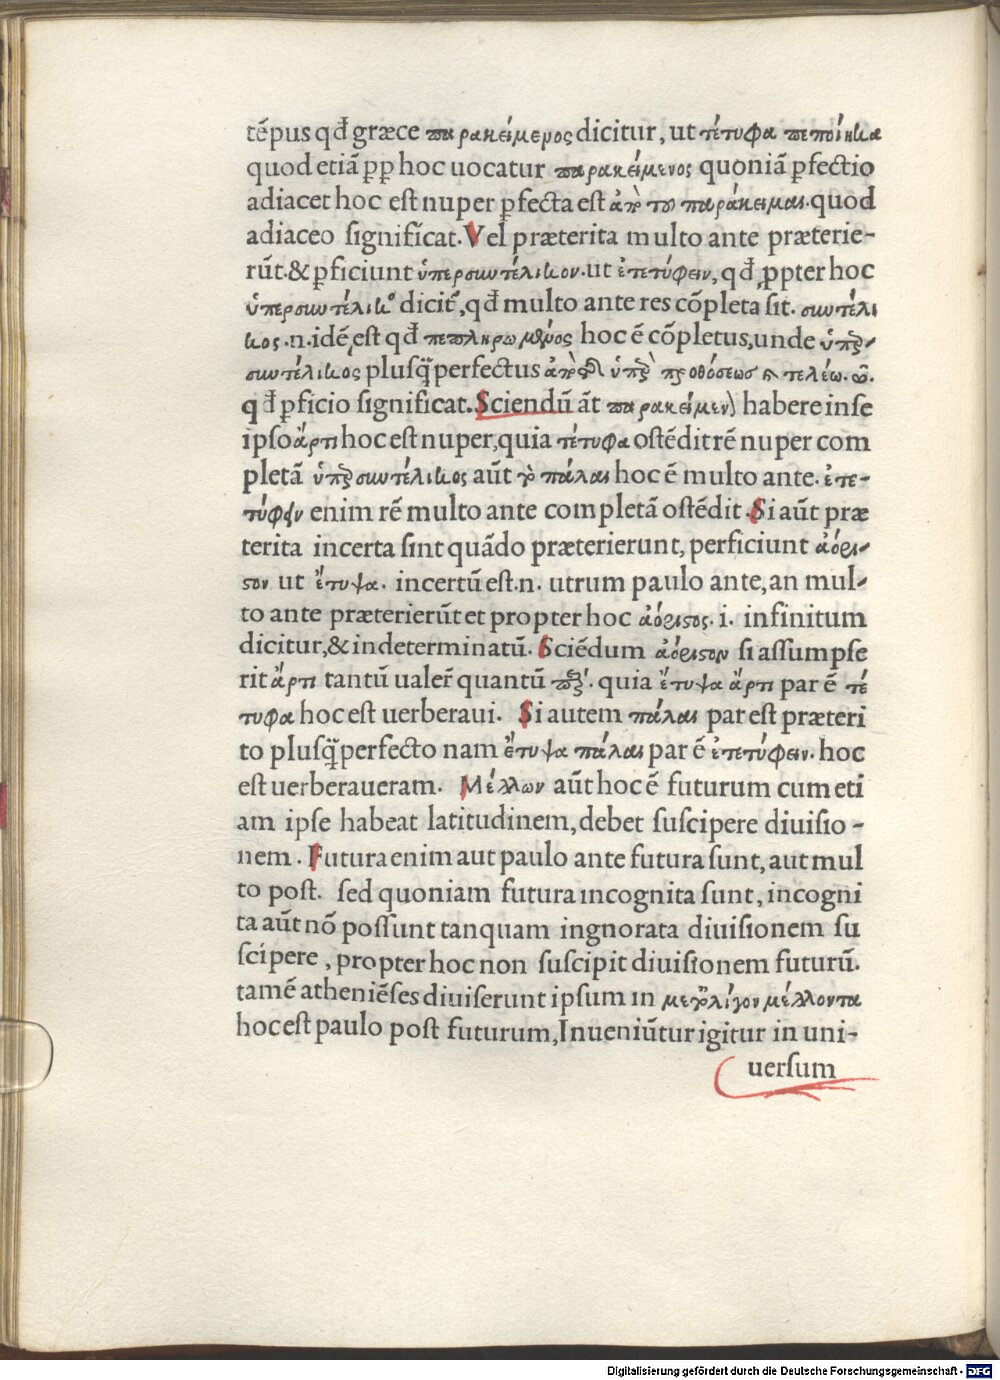 tēpus qđ græce παρακείμενος dicitur, ut τέτυφα πεποίηκα
quod etiã ꝓp hoc uocatur παρακείμενος quoniã ꝑfectio
adiacet hoc est nuper ꝑfecta est ἀπὸ τοῦ παράκειμαι. quod
adiaceo significat. Vel præterita multo ante præterie-
rũt. & ꝑficiunt ὑπερσυντέλικον. ut ἐτετύφειν, qđ ꝓpter hoc
ὑπερσυντέλικος dicit᷑, qđ multo ante res cõpleta sit. συντέλι
κος .n. idē est qđ πεπληρωμένος hoc ē cõpletus, unde ὑπερ-
συντέλικος plusq̃perfectus ὑπὲρ προθέσεως τελέω. ῶ.
qđ ꝑficio significat. Sciendũ ãt παρακείμενον habere in se
ipso ἄρτι hoc est nuper, quia τέτυφα ostēdit rē nuper com
pletã ὑπερσυντέλικος aũt τὸ πάλαι hoc ē multo ante. ἐτε-
τύφειν enim rē multo ante completã ostēdit. Si aũt præ
terita incerta sint quãdo præterierunt, perficiunt ἀόρι-
στον ut ἔτυψα. incertũ est .n. utrum paulo ante, an mul-
to ante præterierũt et propter hoc ἀόριστος .i. infinitum
dicitur, & indeterminatũ. Sciēdum ἀόριστον si assumpse
rit ἄρτι tantũ ualer̃ quantũ quia ἔτυψα ἄρτι par ē τέ
τυφα hoc est uerberaui. Si autem πάλαι par est præteri
to plusq̃perfecto nam ἔτυψα πάλαι par ē ἐτετύφειν. hoc
est uerberaueram. Μέλλων aũt hoc ē futurum cum eti
am ipse habeat latitudinem, debet suscipere diuisio-
nem. Futura enim aut paulo ante futura sunt, aut mul
to post. sed quoniam futura incognita sunt, incogni
ta aũt nõ possunt tanquam ingnorata diuisionem su
scipere, propter hoc non suscipit diuisionem futurũ.
tamē atheniēses diuiserunt ipsum in μετ' ὀλίγον μέλλοντα
hoc est paulo post futurum, Inueniũtur igitur in uni-
uersum
Digitalisierung gefördert durch die Deutsche Forschungsgemeinschaft - DFG